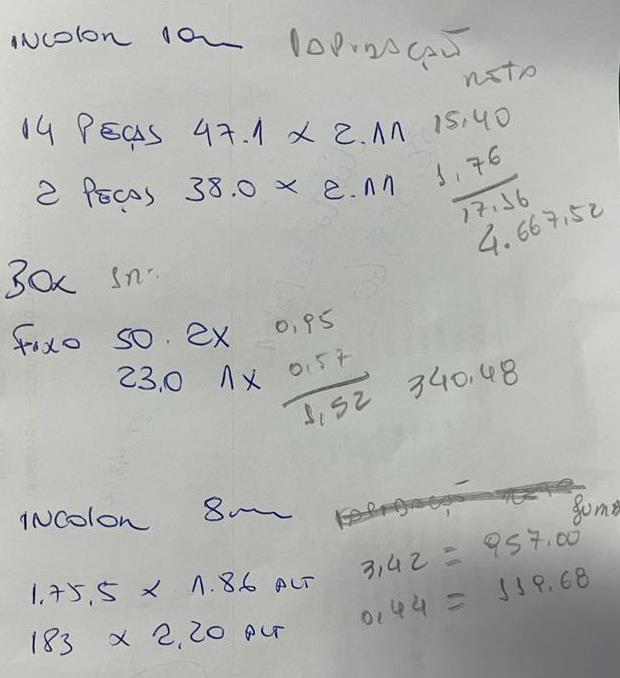 INCOLOR 10m LAPIDAÇÃO
reto
14 PEÇAS 47.1 x 2.11 15,40
2 PEÇAS 38.0 x 2.11 1,76
17,16
4.667,52
30x
Fixo 50. 2x 0,95
23,0 1x 0,57
1,52 340,48
INCOLOR 8m
fumê
1,75,5 x 1.86 ALT 3,42 = 957,00
183 x 2,20 ALT 0,44 = 119,68